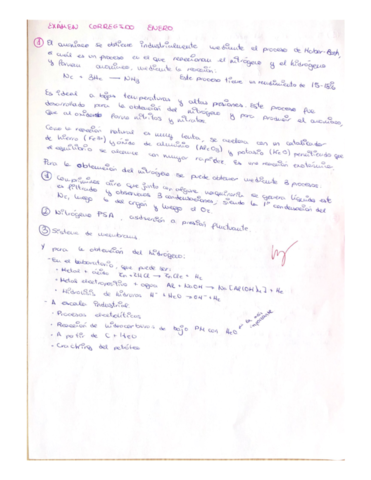 EXAMEN CORREGIDO ENERO
① El amoniaco se obtiene industrialmente mediante el proceso de Haber-Bosh,
el cual es un proceso en el que reaccionan el nitrógeno y el hidrógeno
y forman amoniaco, mediante la reacción:
N₂ + 3H₂ → NH₃ Este proceso tiene un rendimiento de
Es ideal a bajas temperaturas y altas presiones. Este proceso fue
desarrollado para la obtención del nitrógeno y para producir el amoniaco,
que al oxidarse forma nitritos y nitratos.
Como la reacción natural es muy lenta, se acelera con un catalizador
de hierro y óxido de aluminio (Al₂O₃) y potasio (K₂O) permitiendo que
el equilibrio se alcance con mayor rapidez. Es una reacción exotérmica
Para la obtención del nitrógeno se puede obtener mediante 3 procesos:
① Comprimimos aire que junto
es filtrado y obtenemos 3 condensaciones, siendo la 1ª condensación del
N₂, luego la del argón y luego el O₂.
② Nitrógeno PSA, adsorción a presión fluctuante.
③ Sistema de membrana
Y para la obtención del hidrógeno:
- En el laboratorio, que puede ser:
· Metal + ácido Zn + 2HCl → ZnCl₂ + H₂
· Metal + agua Al + NaOH → Na[Al(OH)₄] + H₂
· Hidrólisis de hidruros H⁻ + H₂O → OH⁻ + H₂
- A escala industrial
· Procesos electrolíticos
· Reacción de hidrocarburos de bajo PM con H₂O es la más importante
· A partir de C + H₂O
· Cracking del petróleo